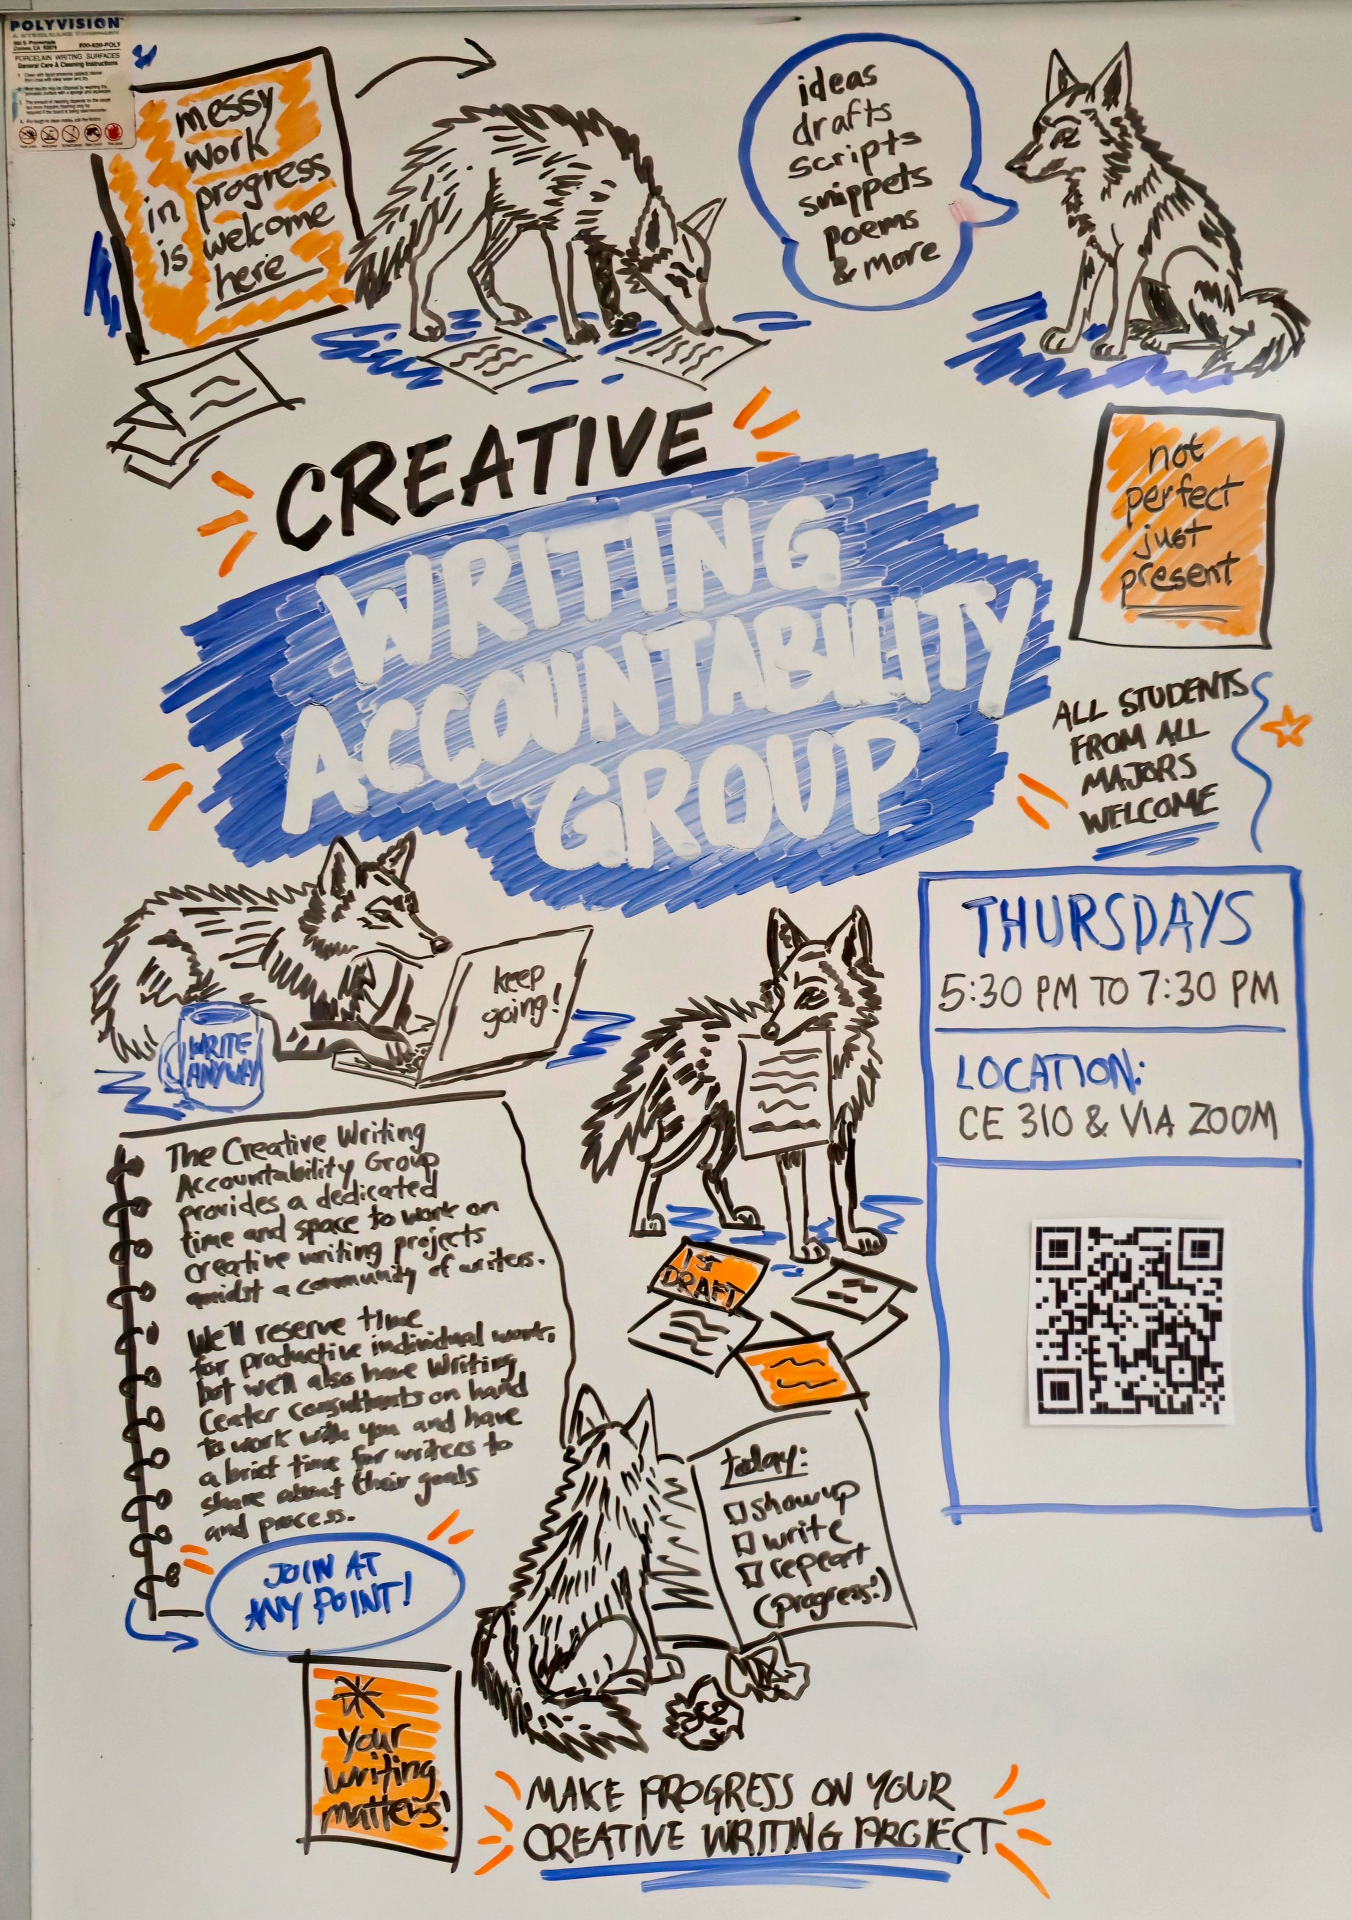 POLYVISION
PORCELAIN WRITING SURFACES
General Care & Cleaning Instructions
messy
work
in progress
is welcome
here
ideas
drafts
scripts
snippets
poems
& more
CREATIVE
WRITING
ACCOUNTABILITY
GROUP
not
perfect
just
present
ALL STUDENTS
FROM ALL
MAJORS
WELCOME
keep
going!
WRITE
ANYWAY
THURSDAYS
5:30 PM TO 7:30 PM
LOCATION:
CE 310 & VIA ZOOM
The Creative Writing
Accountability Group
provides a dedicated
time and space to work on
creative writing projects
amidst a community of writers.
We'll reserve time
for productive individual work,
but we'll also have Writing
Center consultants on hand
to work with you and have
a brief time for writers to
share about their goals
and process.
1ST
DRAFT
JOIN AT
ANY POINT!
today:
show up
write
repeat
(progress!)
your
writing
matters!
MAKE PROGRESS ON YOUR
CREATIVE WRITING PROJECT